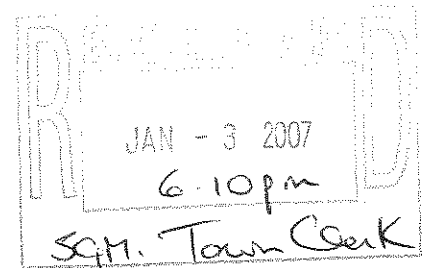 R D
JAN - 3 2007
6.10pm
SGM. Town Clerk